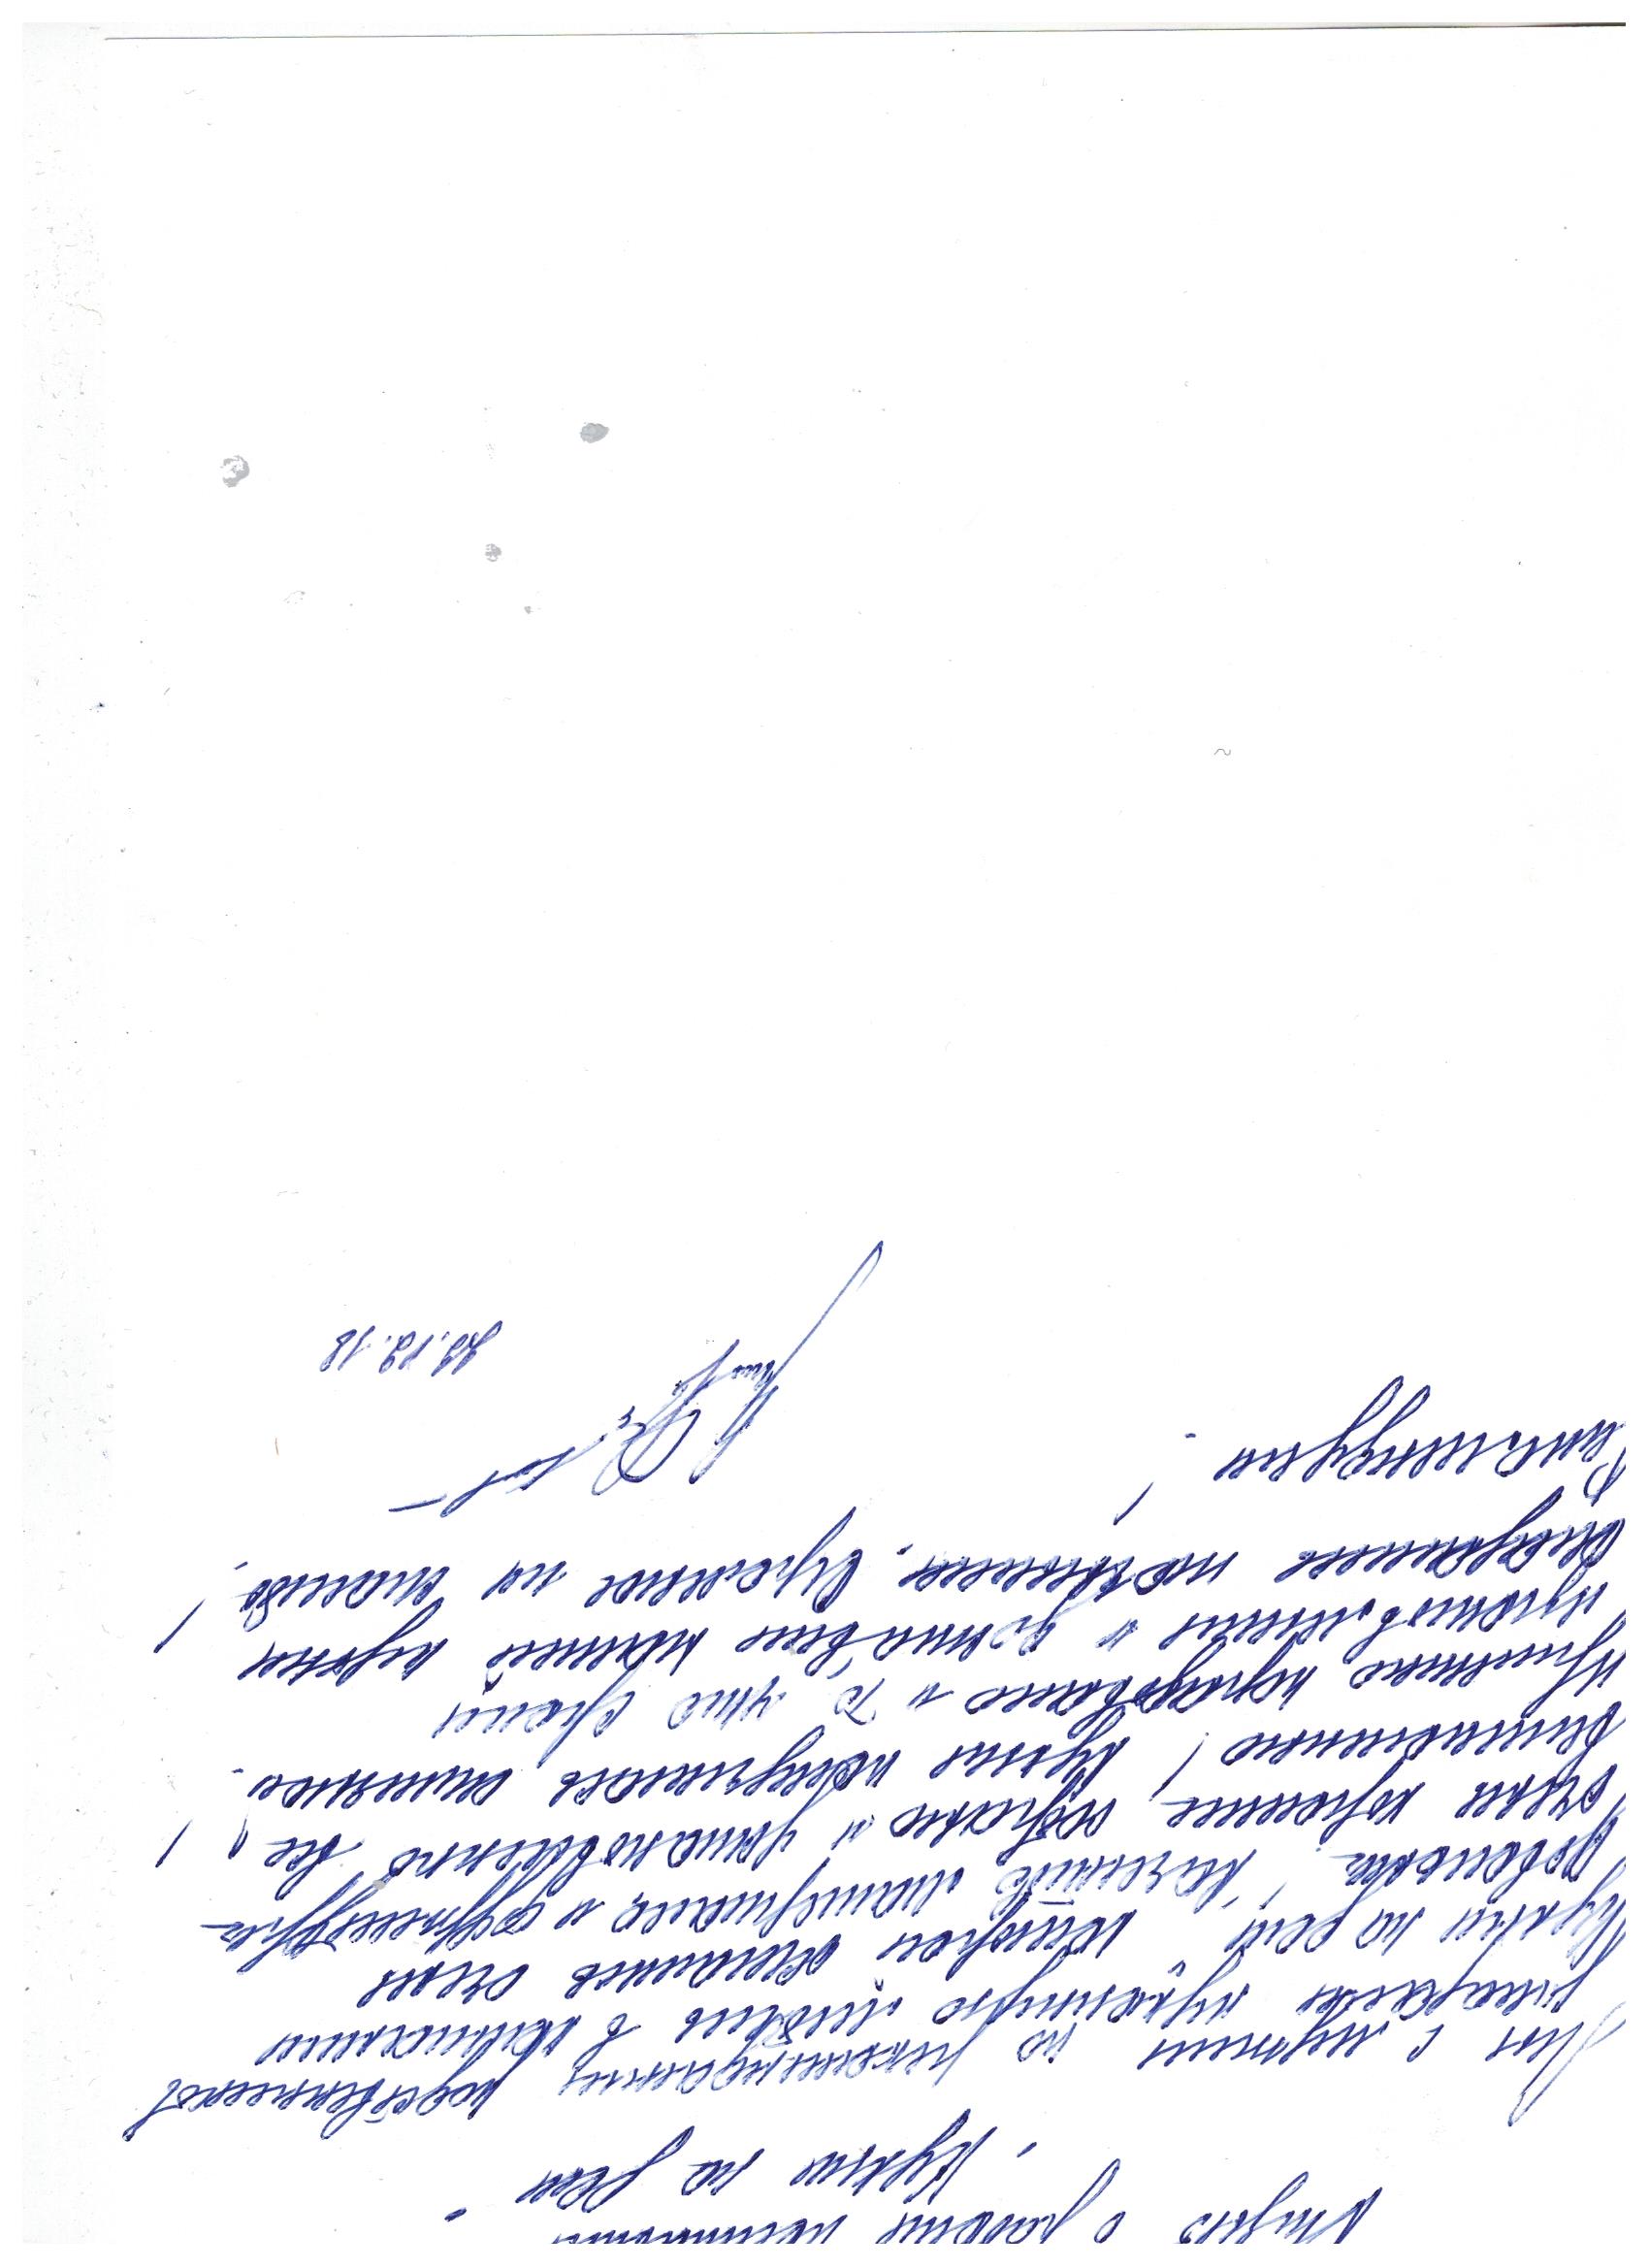 Отзыв о работе компании
"Кухни на дом"
Мы с мужем по рекомендации родственников
заказали кухонную мебель в компании
"Кухни на дом", которой остались очень
довольны! Качество материала и фурнитуры
очень хорошие, собрано и установленно все
отлично! Кухня получилась отличной!
Приятно порадовало и то, что сроки
изготовления и доставки нашей кухни
оказались точными. Огромное им спасибо!
Рекомендуем!
22.12.18